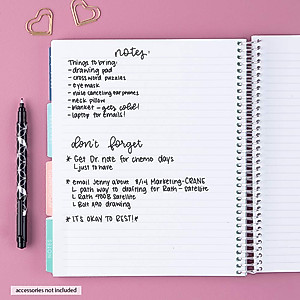 notes:
Things to bring:
- drawing pad
- crossword puzzles
- eye mask
- noise canceling earphones
- neck pillow
- blanket - gets cold!
- laptop for emails!
don't forget
* Get Dr. note for chemo days
↳ just to have
* email Jenny about 8/14 Marketing - CRANE
↳ path way to drafting for Rath - satellite
↳ Rath 4700B Satellite
↳ Bolt A90 drawing
* IT'S OKAY TO REST! *
accessories not included